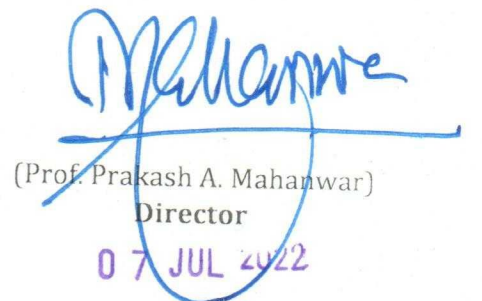 (Prof. Prakash A. Mahanwar)
Director
07 JUL 2022